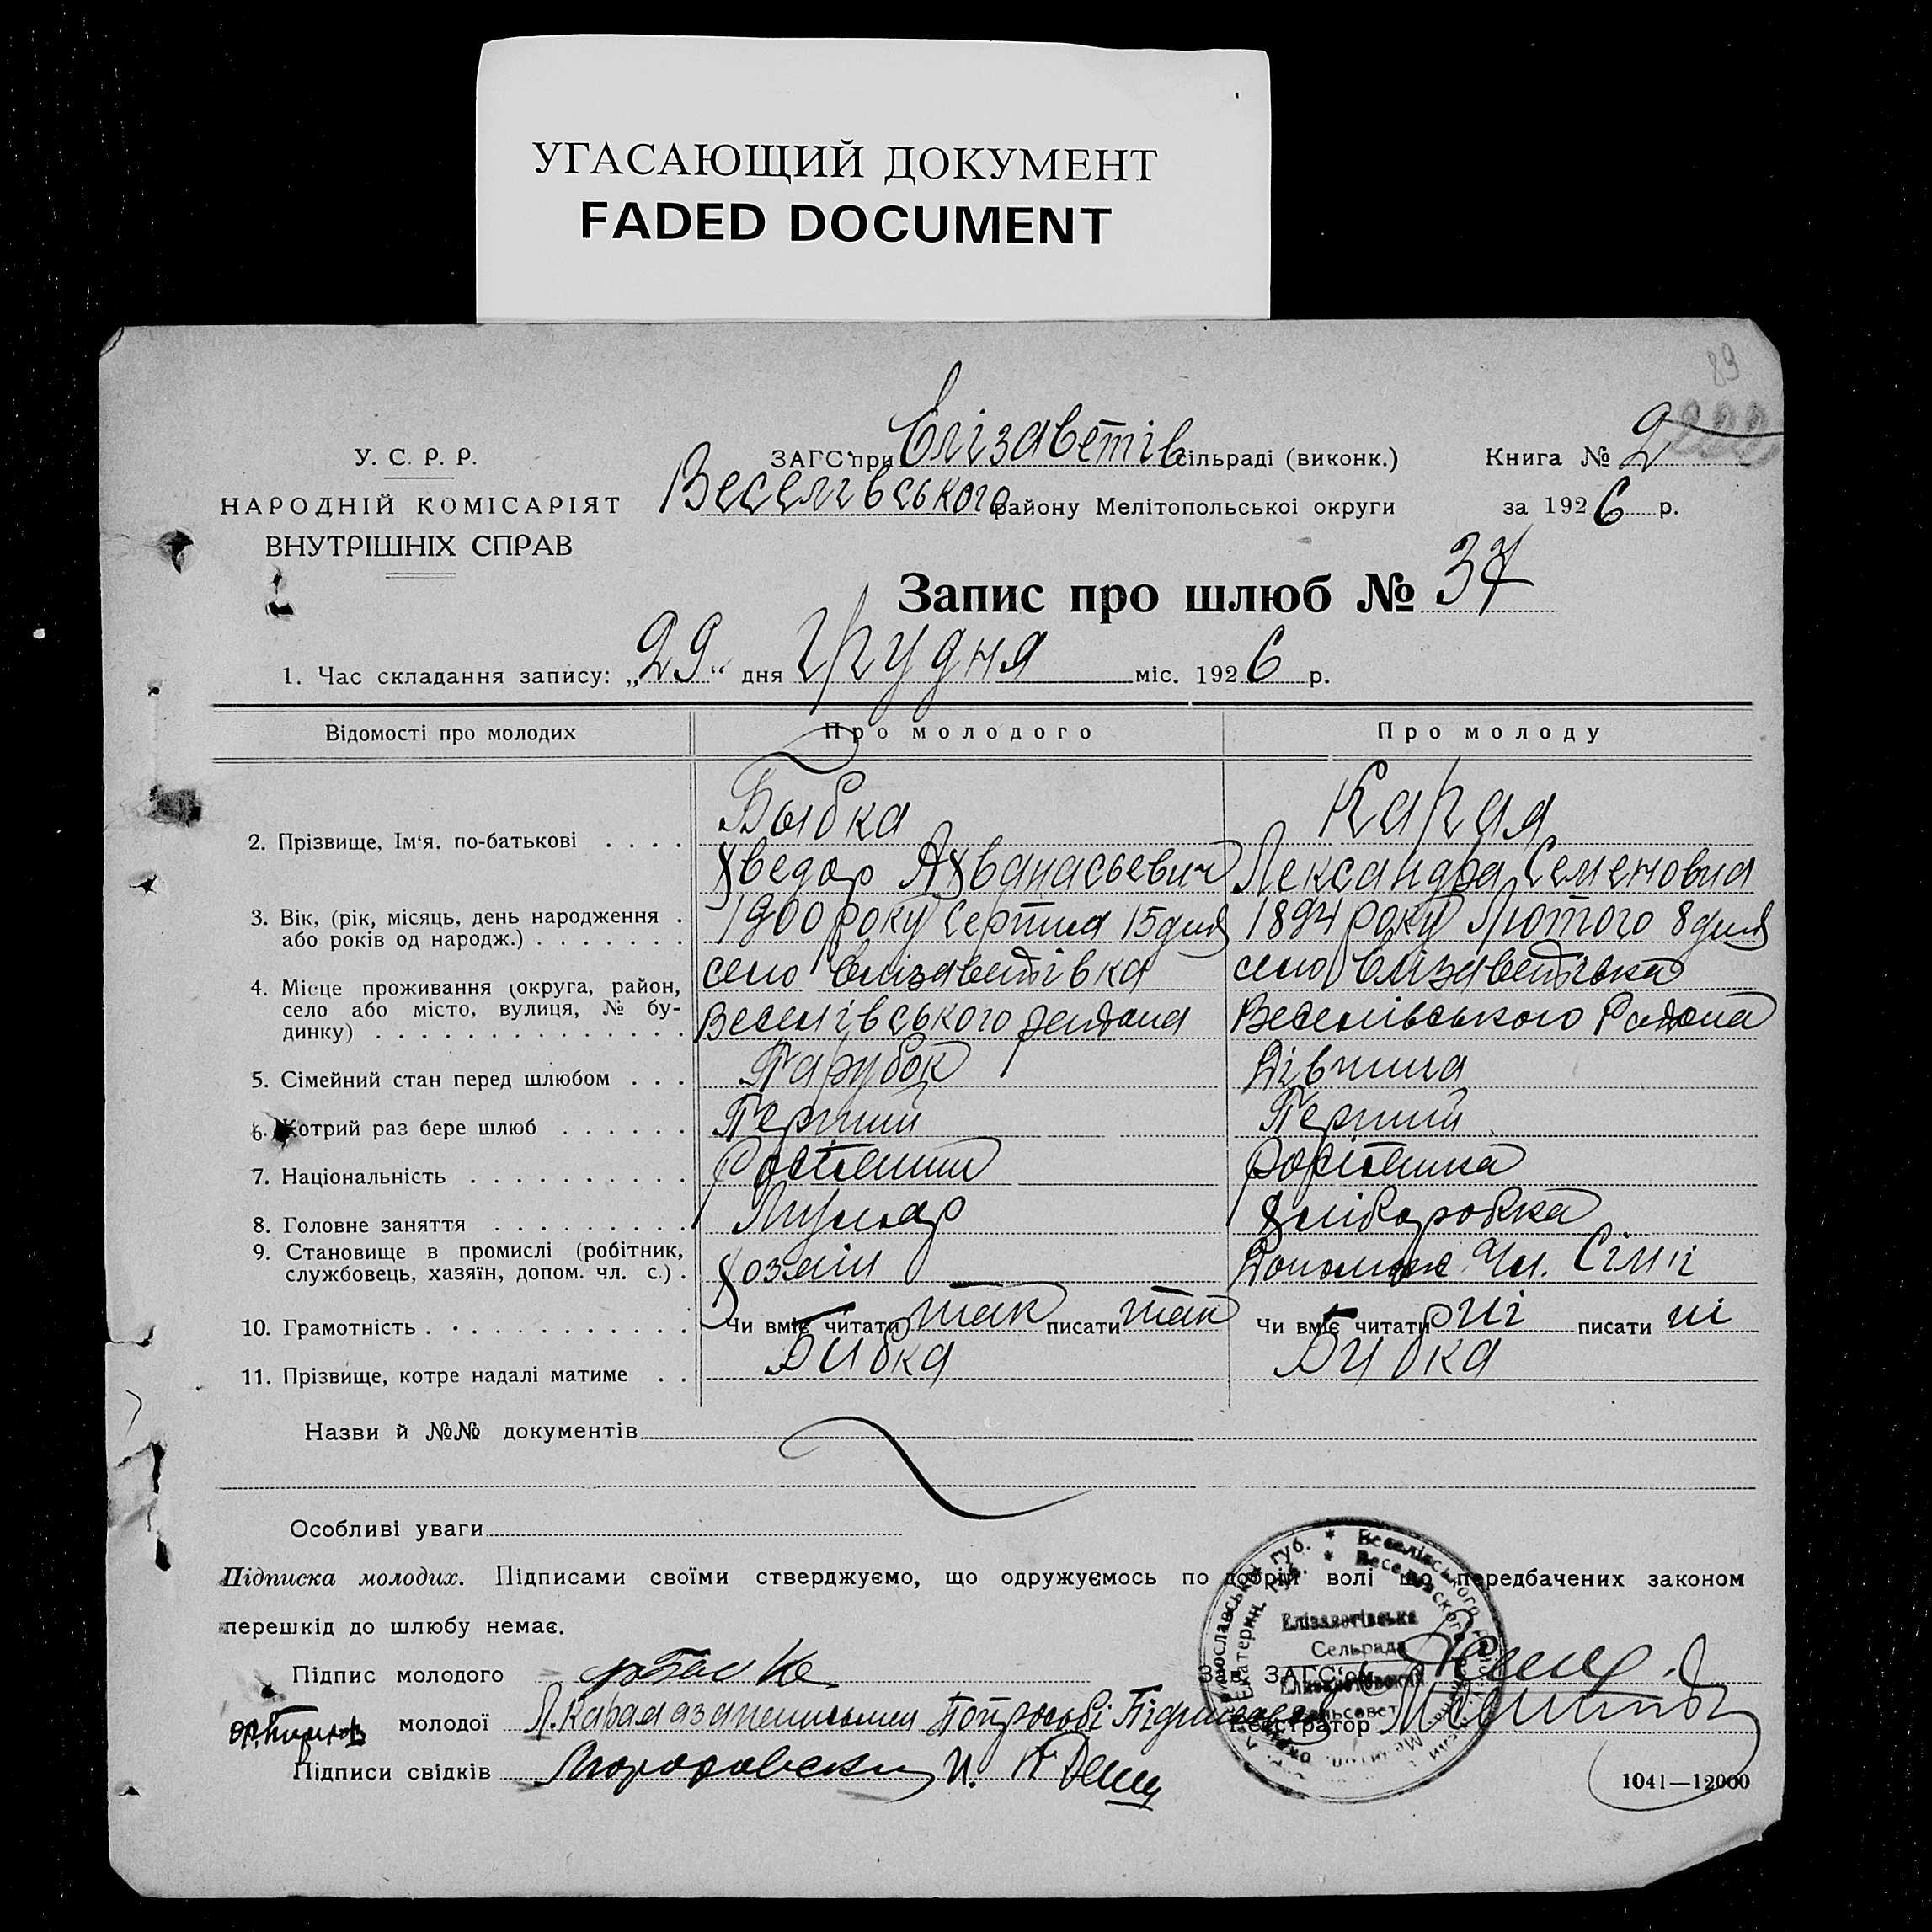 УГАСАЮЩИЙ ДОКУМЕНТ
FADED DOCUMENT
89
У. С. Р. Р.
НАРОДНІЙ КОМІСАРІЯТ
ВНУТРІШНІХ СПРАВ
ЗАГС при Єлізаветів сільраді (виконк.)
Веселівського району Мелітопольської округи
Книга № 2
за 1926 р.
Запис про шлюб № 37
1. Час складання запису: „29“ дня грудня міс. 1926 р.
Відомості про молодих Про молодого Про молоду
2. Прізвище, Ім‘я. по-батькові . . . . Быбка Карая
Хведор Ахванасьевич Лександра Семеновна
3. Вік, (рік, місяць, день народження . або років од народж.) 1900 року Серпня 15 дня 1894 року Лютого 8 дня
4. Місце проживання (округа, район, село або місто, вулиця, № будинку) село Єлізаветівка село Єлізаветівка
Веселівського району Веселівського Района
5. Сімейний стан перед шлюбом . . . Парубок Дівчина
6. Котрий раз бере шлюб Перший Перший
7. Національність
8. Головне заняття Хліборобка
9. Становище в промислі (робітник, службовець, хазяїн, допом. чл. с.) . Хозяїн Допомож Чл. Сімї
10. Грамотність Чи вміє читати так писати так Чи вміє читати ні писати ні
11. Прізвище, котре надалі матиме . . Бибка Бибка
Назви й №№ документів
Особливі уваги
Підписка молодих. Підписами своїми стверджуємо, що одружуємось по добрій волі що передбачених законом
перешкід до шлюбу немає.
Підпис молодого
Зав. ЗАГС‘ом
молодої Л. Карая
Реєстратор
Підписи свідків
Єлізаветівська
Сельрада
1041—12000